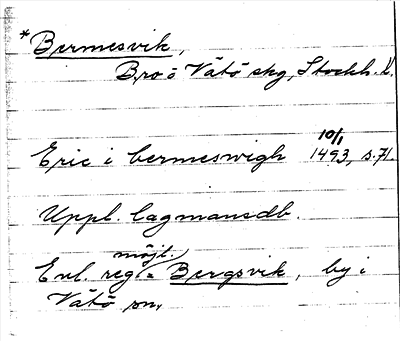 *Bermesvik,
Bro o Vätö skg, Stockh. l.
Eric i bermeswigh 10/1 1493, s. 71.
Uppl. lagmansdb.
Enl. reg möjl. = Bergsvik, by i
Vätö sn,